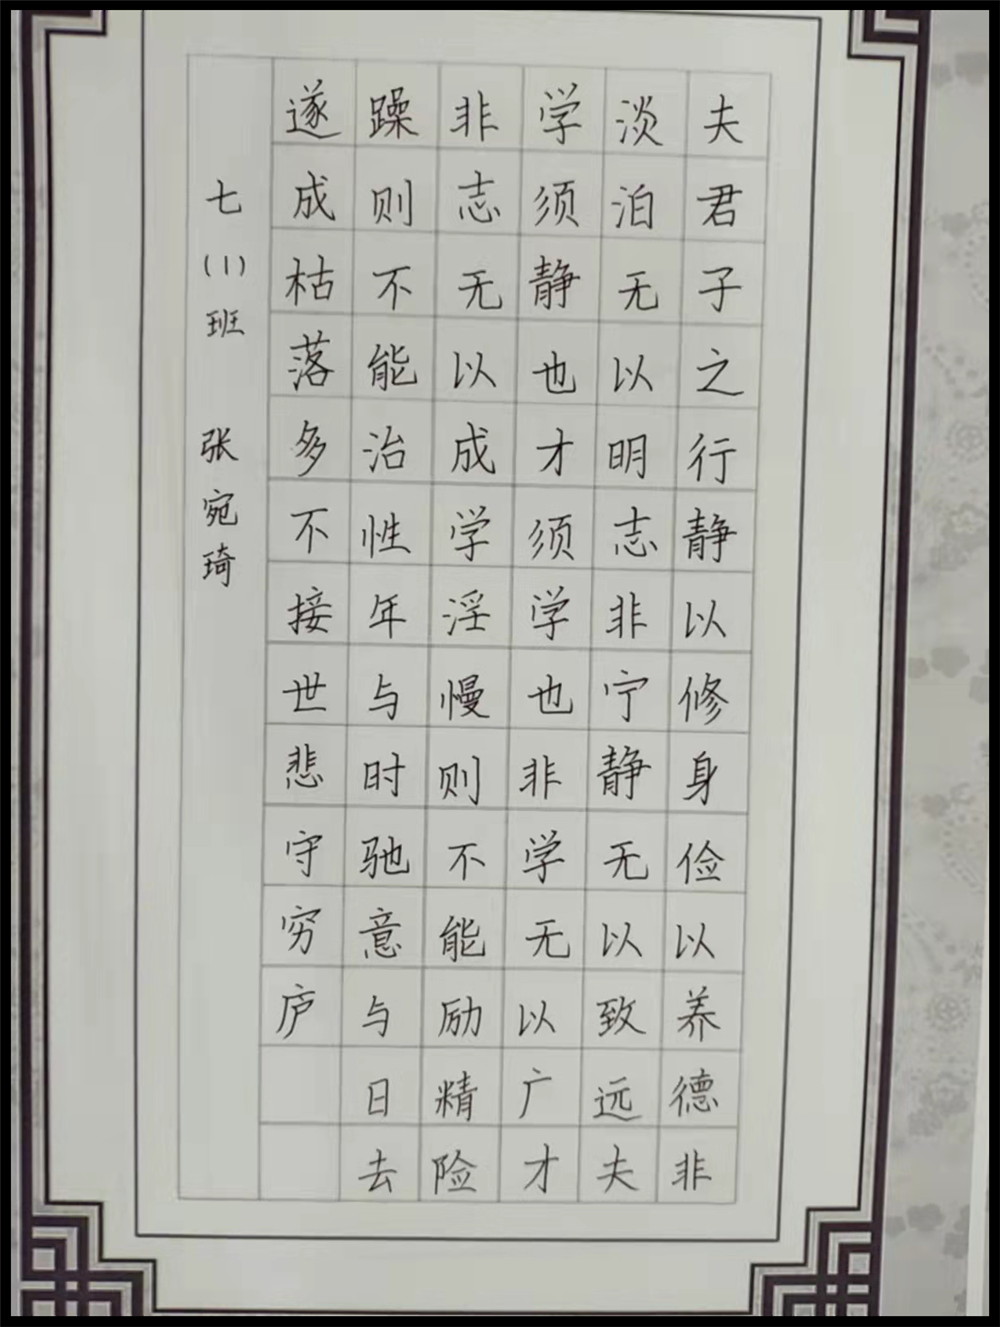 夫君子之行静以修身俭以养德非
淡泊无以明志非宁静无以致远夫
学须静也才须学也非学无以广才
非志无以成学淫慢则不能励精险
躁则不能治性年与时驰意与日去
遂成枯落多不接世悲守穷庐
七(1)班 张宛琦